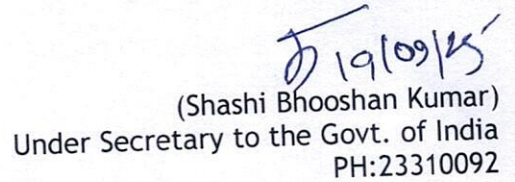 19/09/25
(Shashi Bhooshan Kumar)
Under Secretary to the Govt. of India
PH:23310092